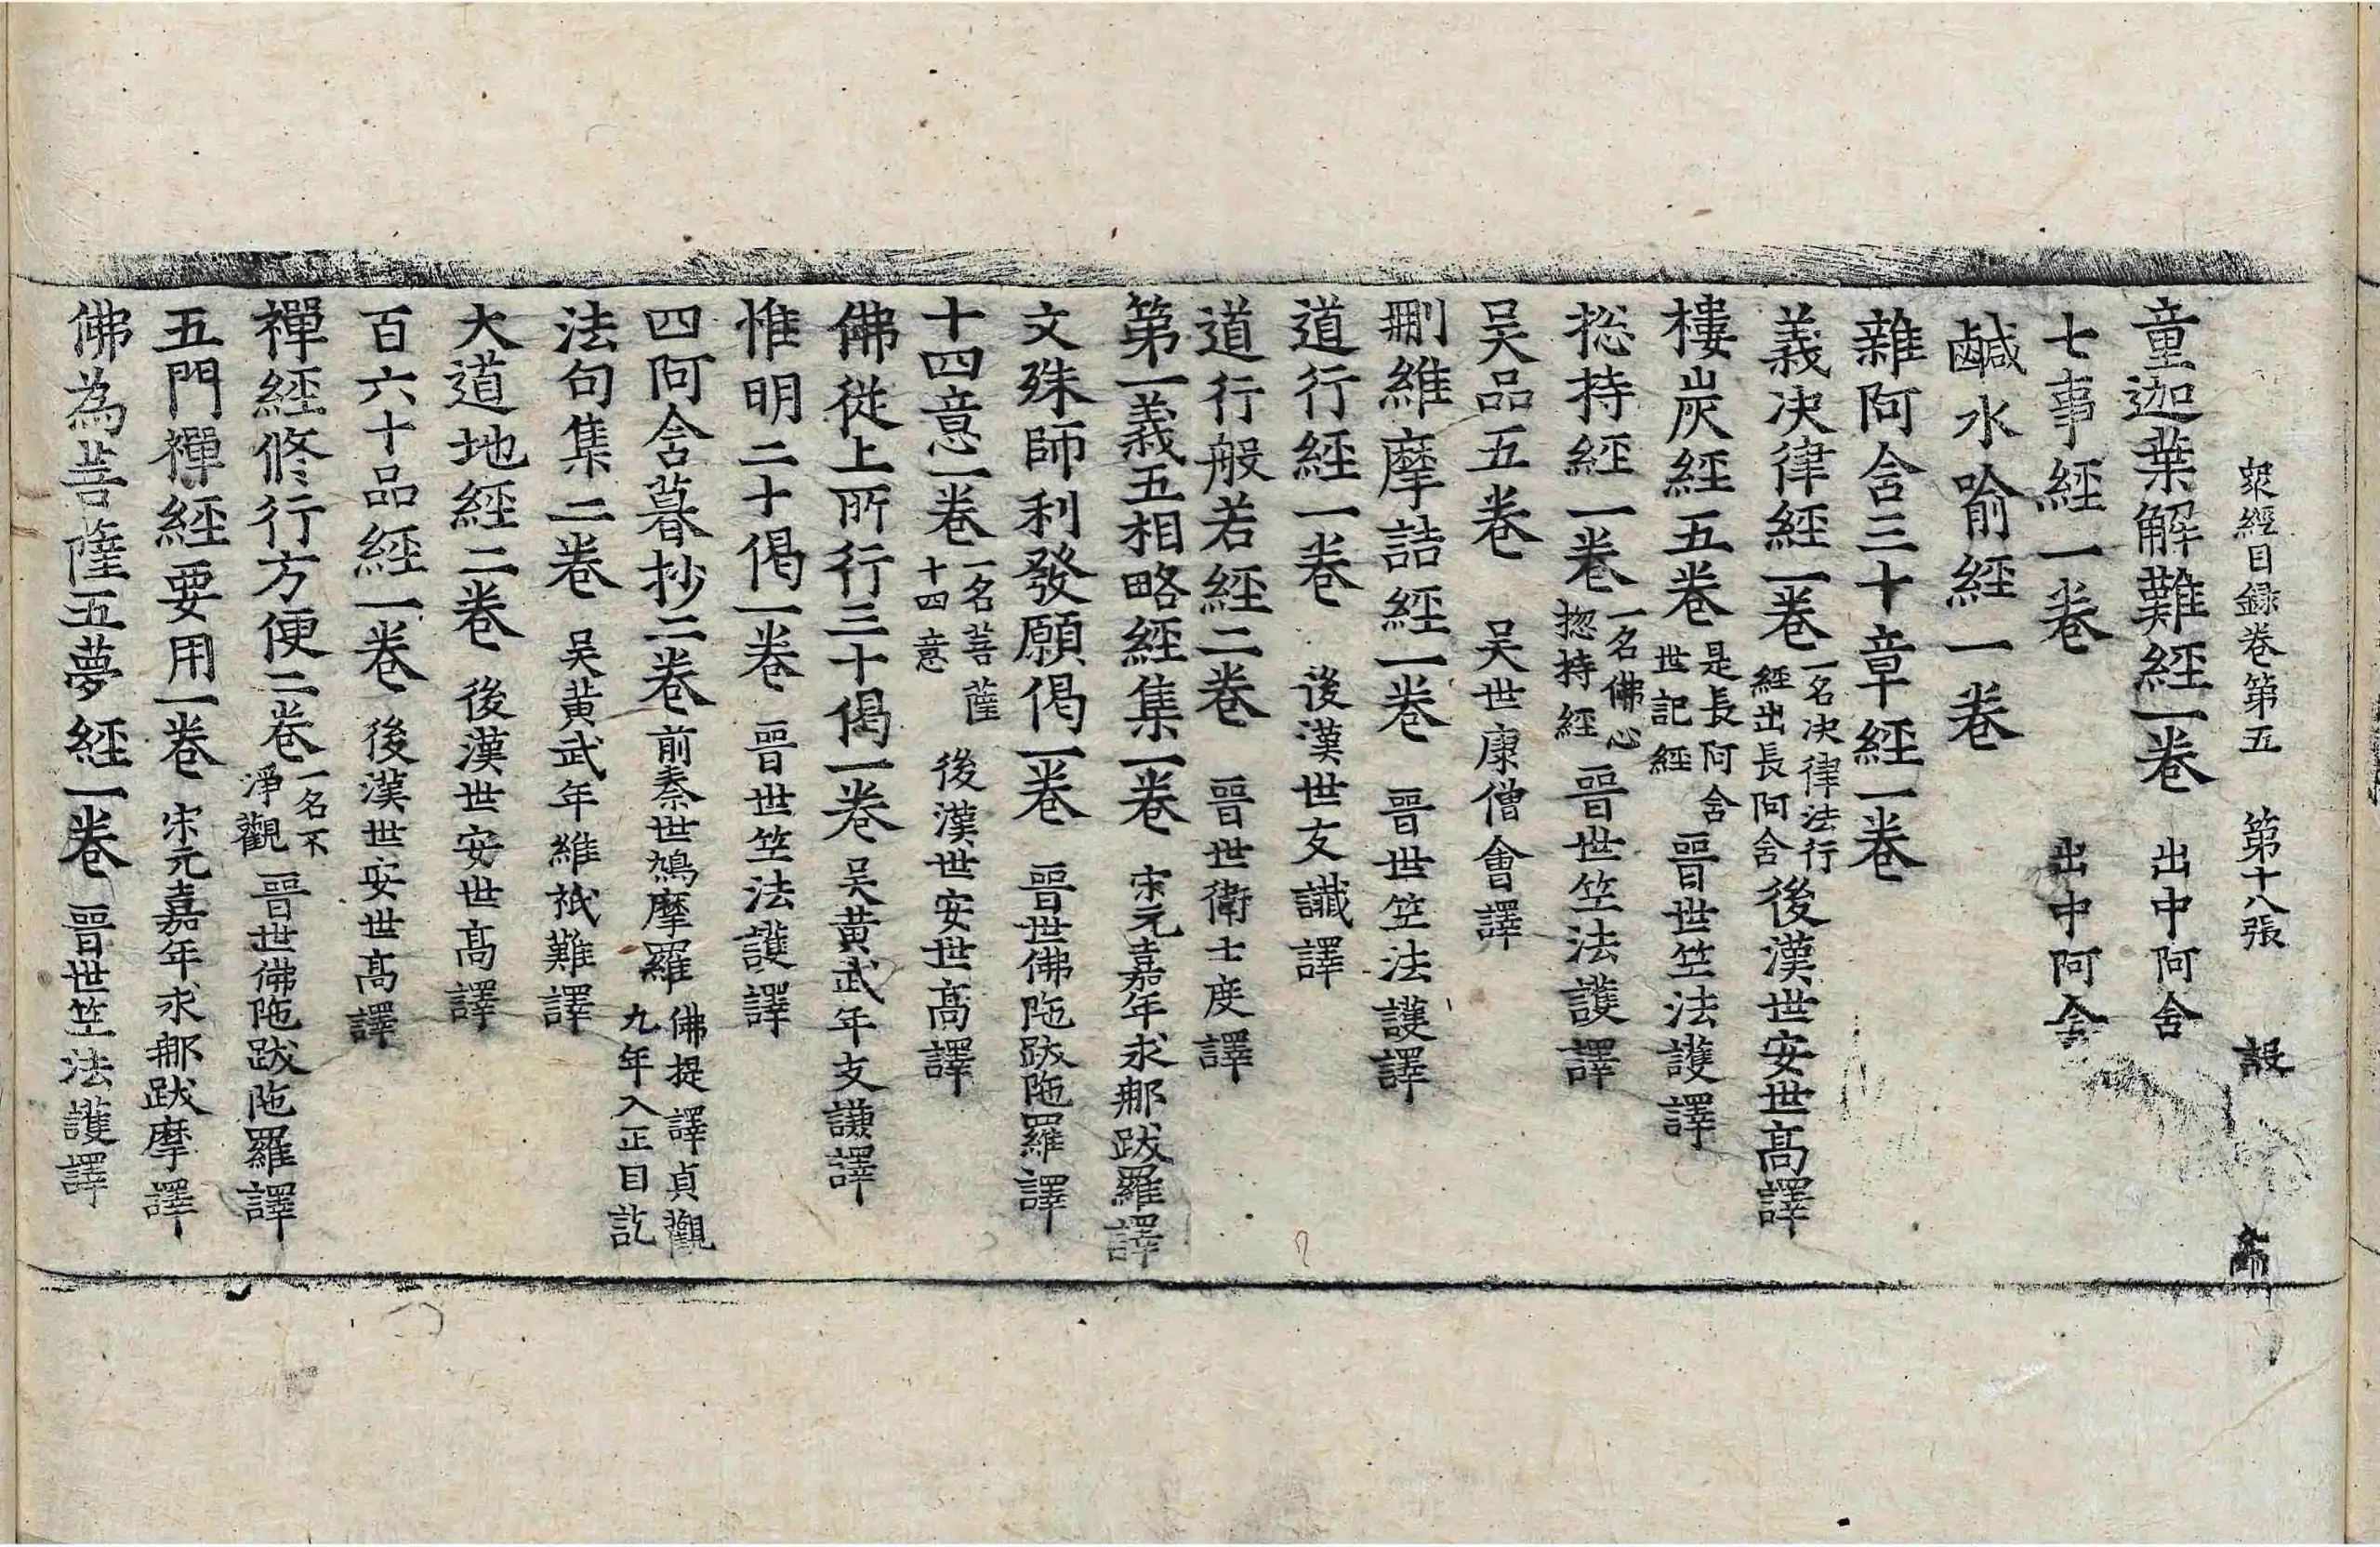 衆經目録卷第五 第十八張 設
童迦葉解難經一卷 出中阿含
七事經一卷 出中阿含
鹹水喻經一卷
雜阿含三十章經一卷
義決律經一卷 一名决律法行經出長阿含 後漢世安世高譯
樓炭經五卷 是長阿含世記經 晉世竺法護譯
揔持經一卷 一名佛心揔持經 晉世竺法護譯
吴品五卷 吴世康僧會譯
刪維摩詰經一卷 晉世竺法護譯
道行經一卷 後漢世支讖譯
道行般若經二卷 晉世衛士度譯
第一義五相略經集一卷 宋元嘉年求那跋羅譯
文殊師利發願偈一卷 晉世佛陁跋陁羅譯
十四意一卷 一名菩薩十四意 後漢世安世髙譯
佛從上所行三十偈一卷 吴黄武年支謙譯
惟明二十偈一卷 晉世竺法護譯
四阿含暮抄二卷 前秦世鳩摩羅佛提譯貞觀九年入正目訖
法句集二卷 吴黄武年維祇難譯
大道地經二卷 後漢世安世髙譯
百六十品經一卷 後漢世安世髙譯
禪經修行方便二卷 一名不淨觀 晉世佛陁跋陁羅譯
五門禪經要用一卷 宋元嘉年求那跋摩譯
佛為菩薩五夢經一卷 晉世竺法護譯